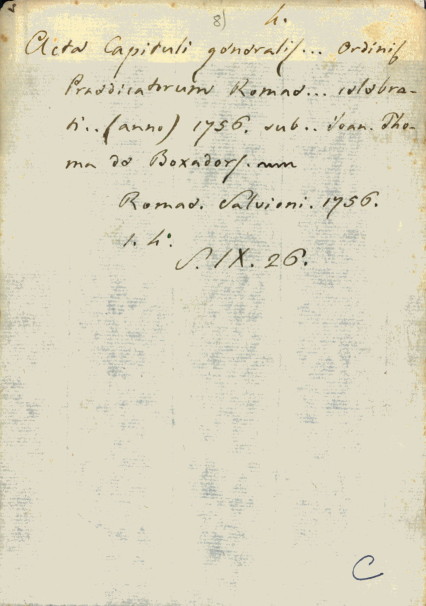 8) 4.
Acta Capituli generalis... Ordinis
Praedicatorum Romae... celebra-
ti... (anno) 1756. sub.. Joan. Tho-
ma de Boxadors.
Romae. Salvioni. 1756.
1. 4°.
S. IX. 26.
C